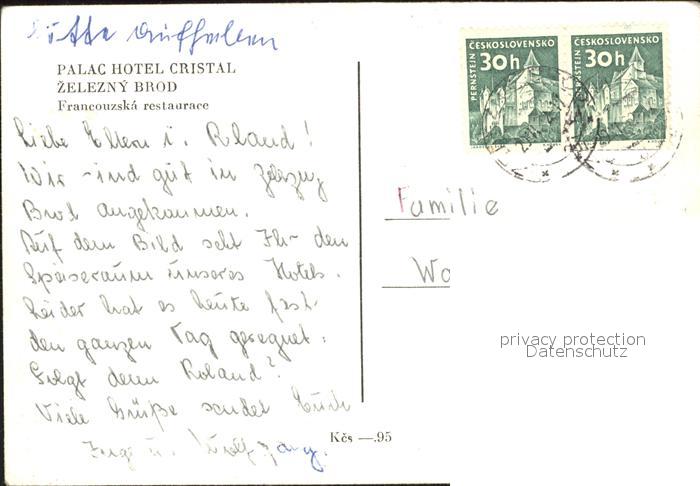 Bitte aufheben
PALAC HOTEL CRISTAL
ŽELEZNÝ BROD
Francouzská restaurace
Liebe Eltern u. Roland!
Wir sind gut in Zelezny
Brod angekommen.
Auf dem Bild seht Ihr den
Speiseraum unseres Hotels.
Leider hat es heute fast
den ganzen Tag geregnet.
Folgt denn Roland?
Viele Grüße sendet Euch
Inge u. Wolfgang.
Kčs —.95
ČESKOSLOVENSKO
PERNŠTEJN
30h
ČESKOSLOVENSKO
PERNŠTEJN
30h
Familie
Wo
privacy protection
Datenschutz